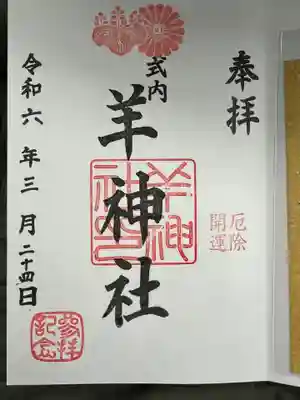 奉拝
厄除
開運
式内
羊神社
羊神
社印
令和六年三月二十四日
参拝
記念